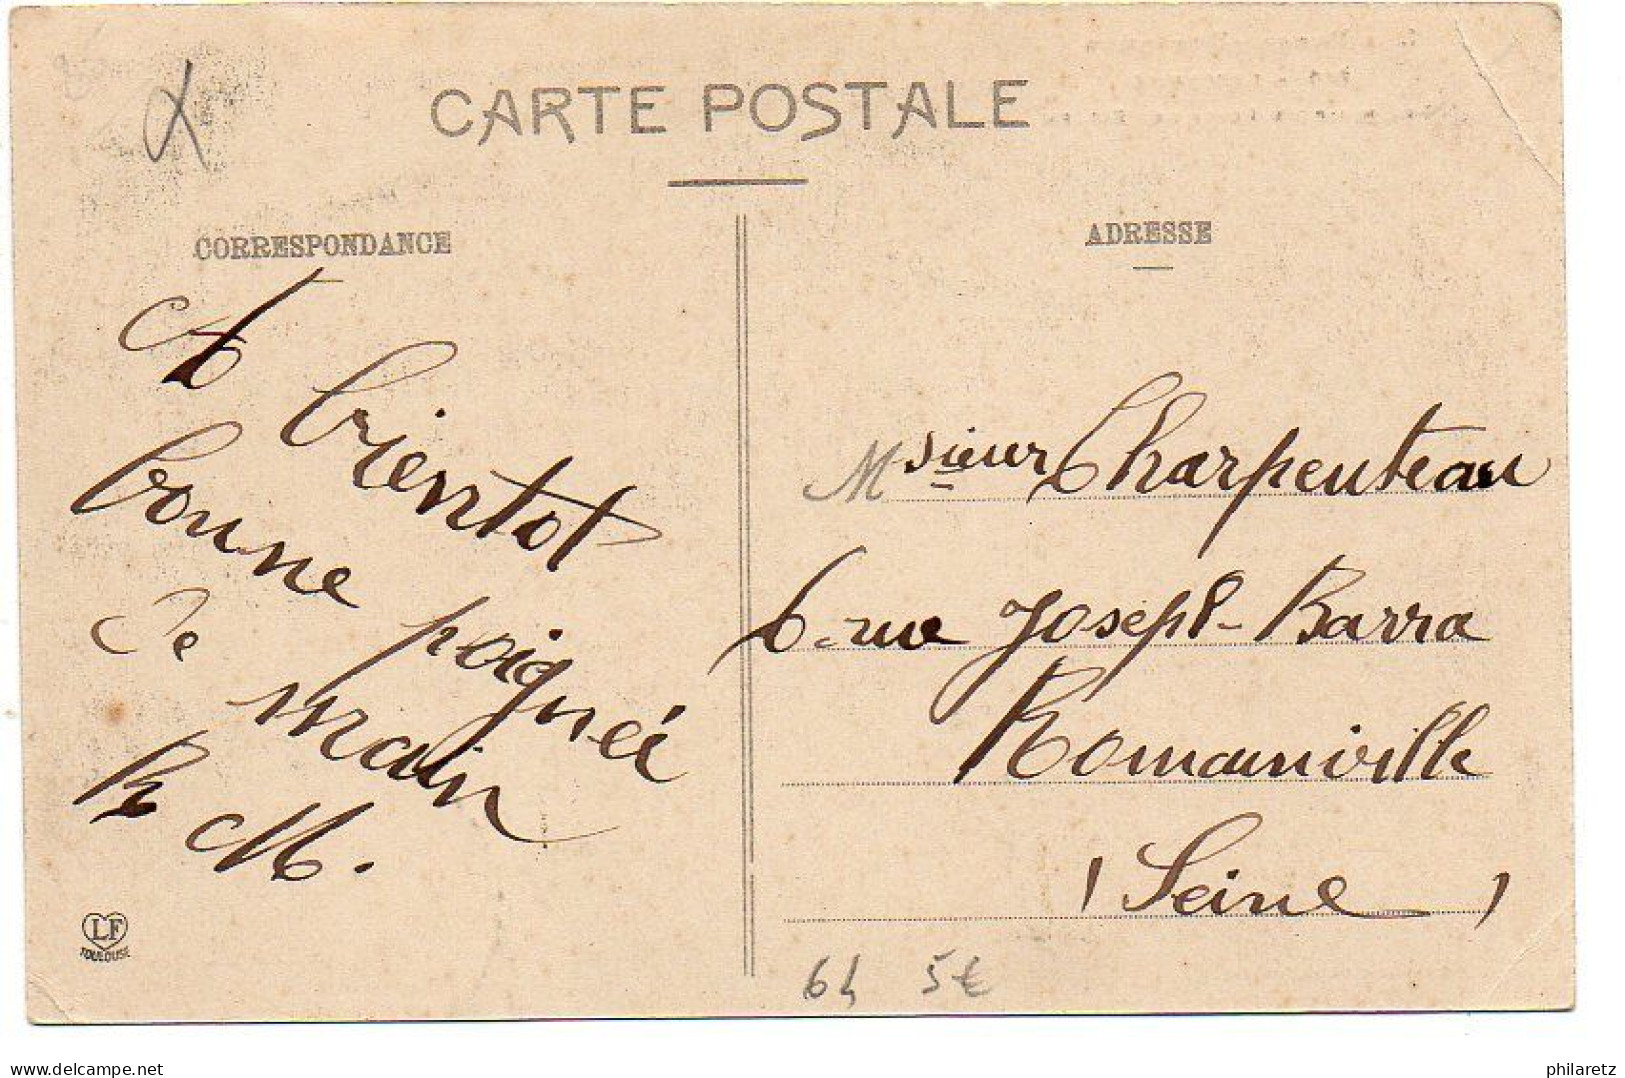 CARTE POSTALE
CORRESPONDANCE
ADRESSE
A bientot
bonne poignée
de main
M.
Msieur Charpenteau
6. rue Joseph-Barra
Romainville
(Seine)
LF
TOULOUSE
64 5€
delcampe.net
philaretz